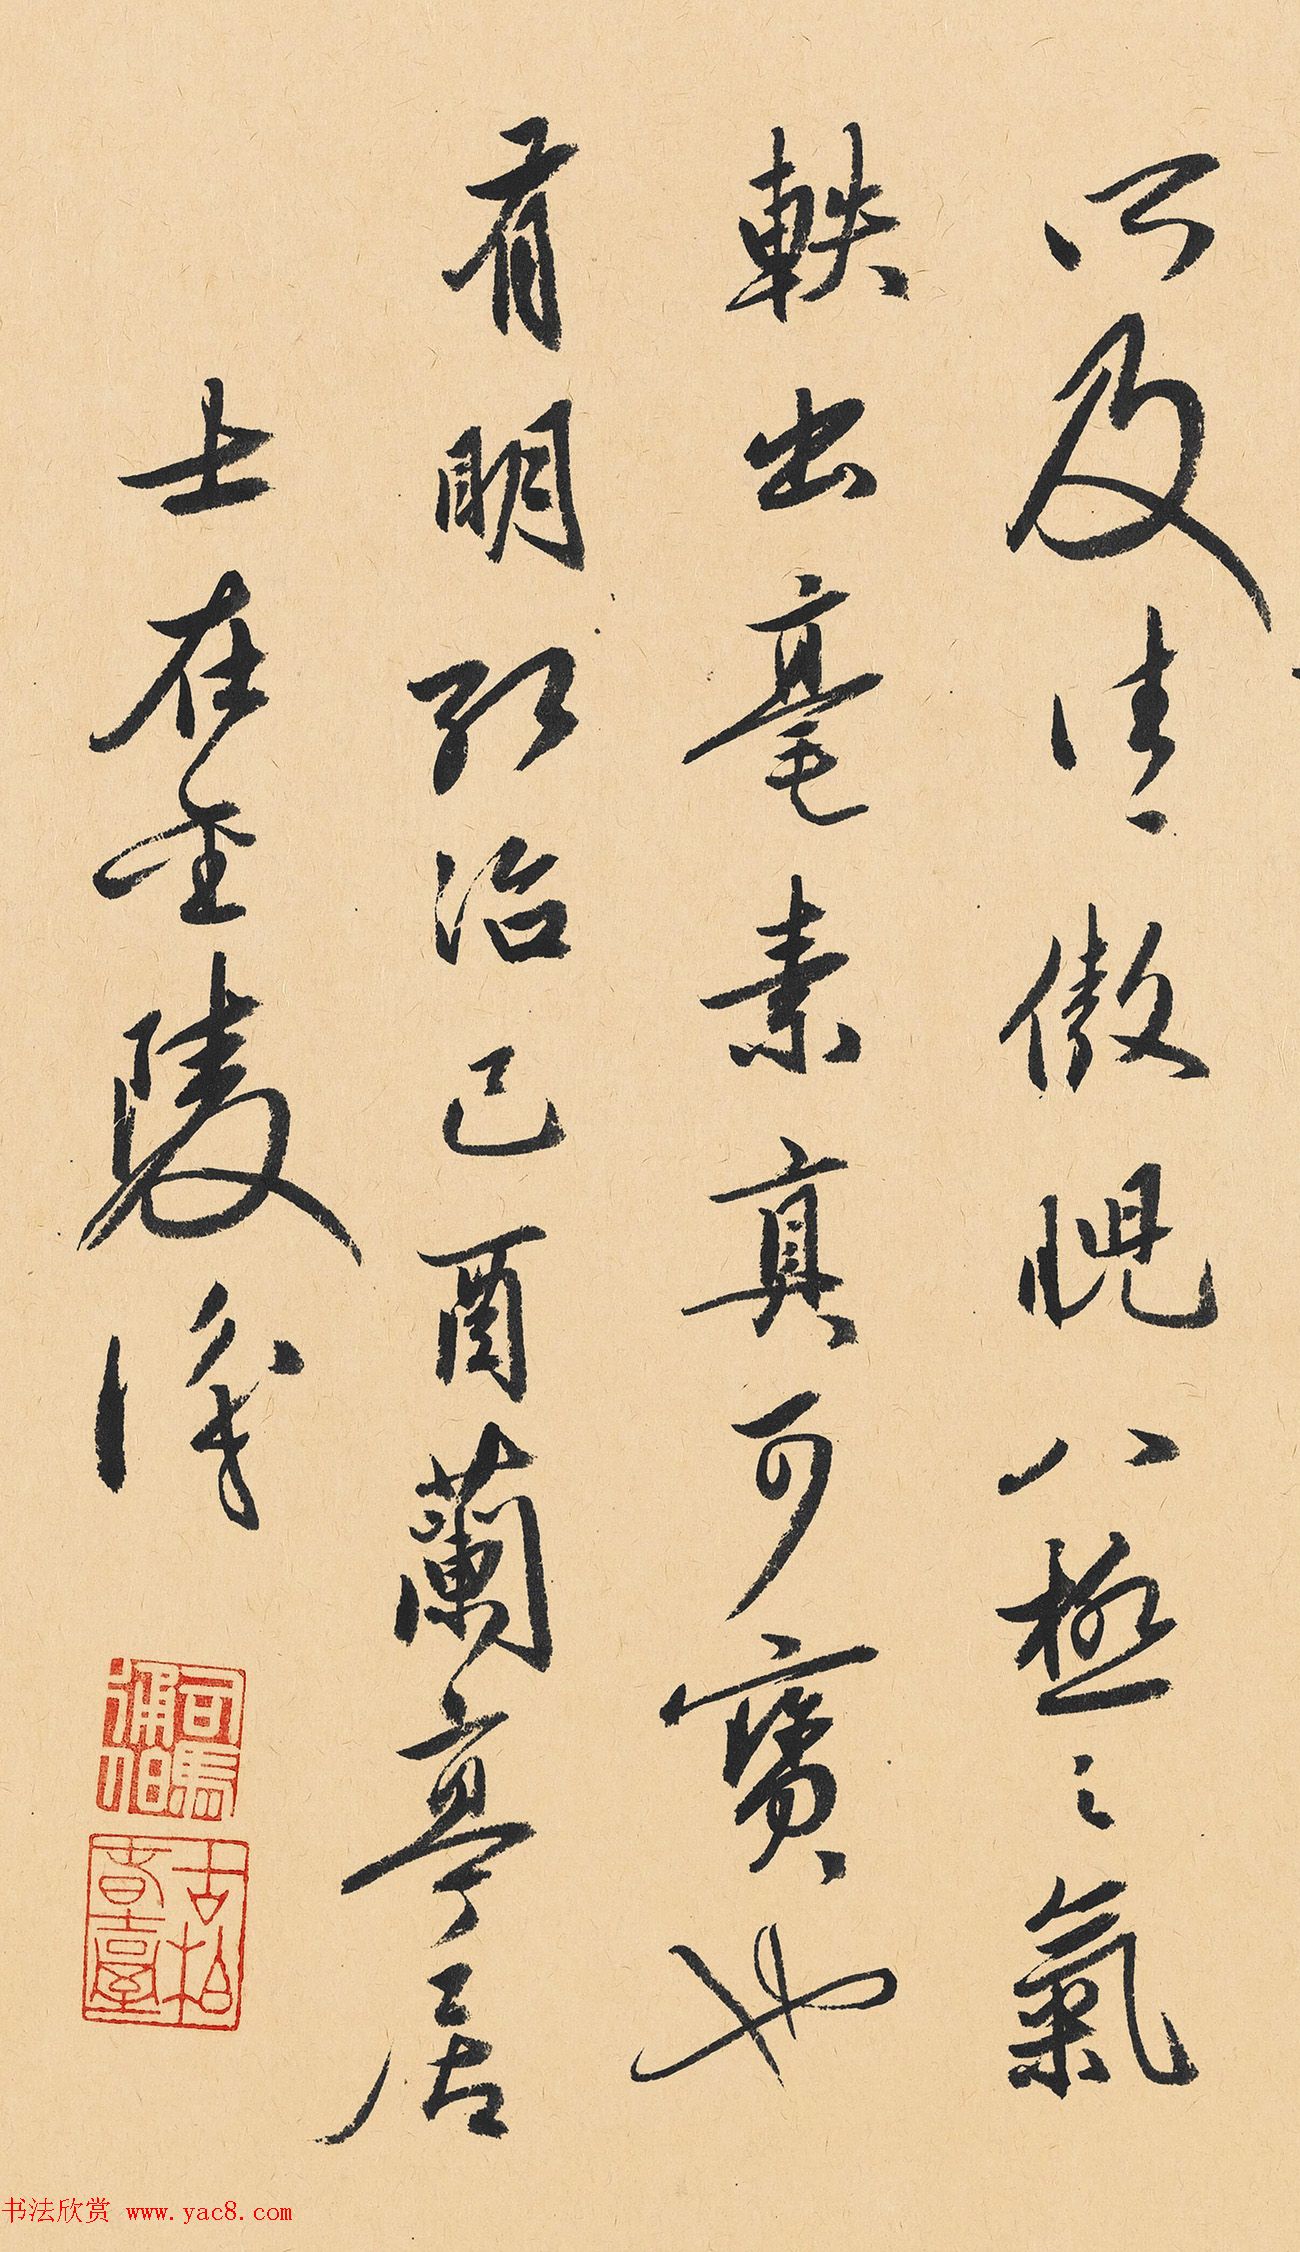 所及往〻傲睨八極之氣
軼出毫素真可寶也
有明弘治己酉蘭亭居
士在金陵
司馬通伯
古柏
书法欣赏 www.yac8.com